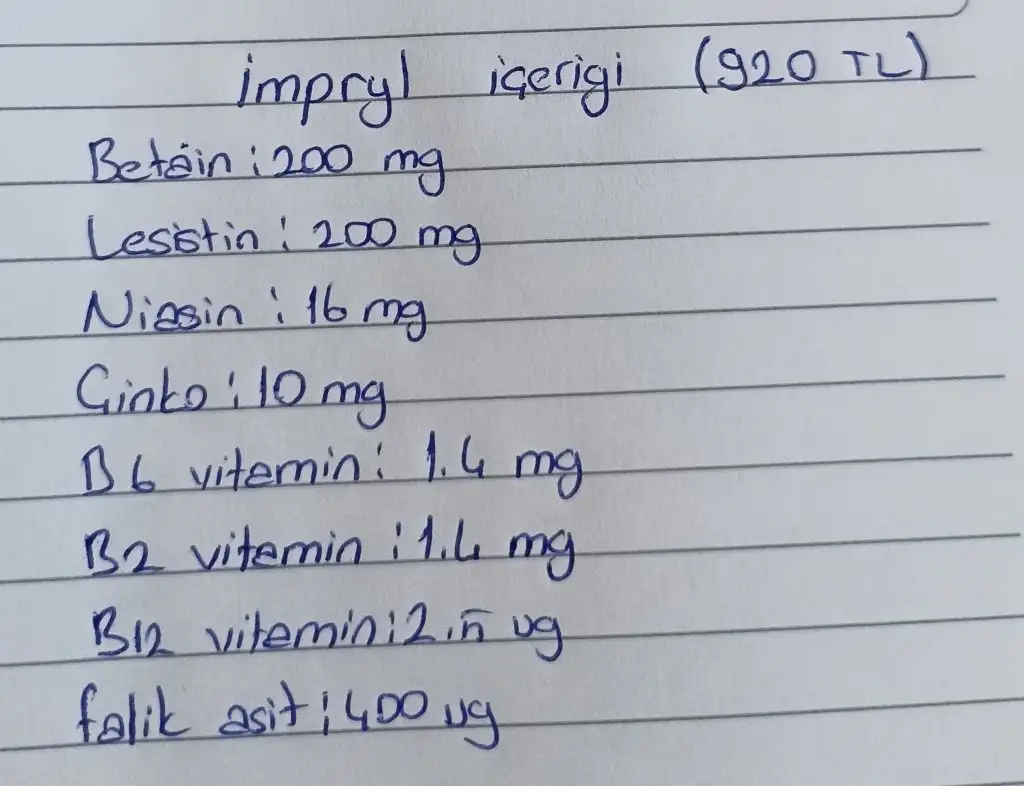 impryl içerigi (920 TL)
Betain : 200 mg
Lesistin : 200 mg
Niasin : 16 mg
Ginko : 10 mg
B6 vitamin : 1.4 mg
B2 vitamin : 1.4 mg
B12 vitamin : 2. ug
folik asit : 400 ug